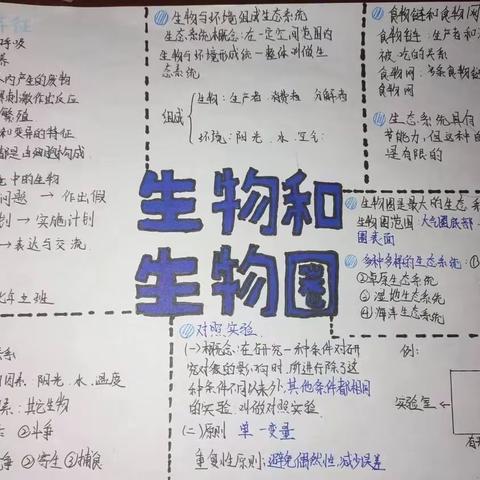 呼吸
内产生的废物
刺激作出反应
繁殖
和变异的特征
都是由细胞构成
中的生物
问题 → 作出假
划 → 实施计划
→ 表达与交流
五班
生物与环境组成生态系统
生态系统概念:在一定空间范围内
生物与环境形成统一整体叫做生
态系统
组成
生物:生产者 消费者 分解者
环境:阳光、水、空气
食物链和食物网
食物链:生产者和消
被吃的关系
食物网:多条食物链
食物网
生态系统具有
节能力,但这种的
是有限的
生物和
生物圈
生物圈是最大的生态系
生物圈范围:大气圈底部
圈表面
多种多样的生态系统:①
②草原生态系统
③湿地生态系统
④海洋生态系统
系
因素:阳光、水、温度
素:其它生物
②斗争
争 ②寄生 ③捕食
对照实验
(一)概念:在研究一种条件对研
究对象的影响时,所进行除了这
种条件不同以外,其他条件都相同
的实验,叫做对照实验
(二)原则 单一变量
重复性原则:避免偶然性,减少误差
例:
实验室←